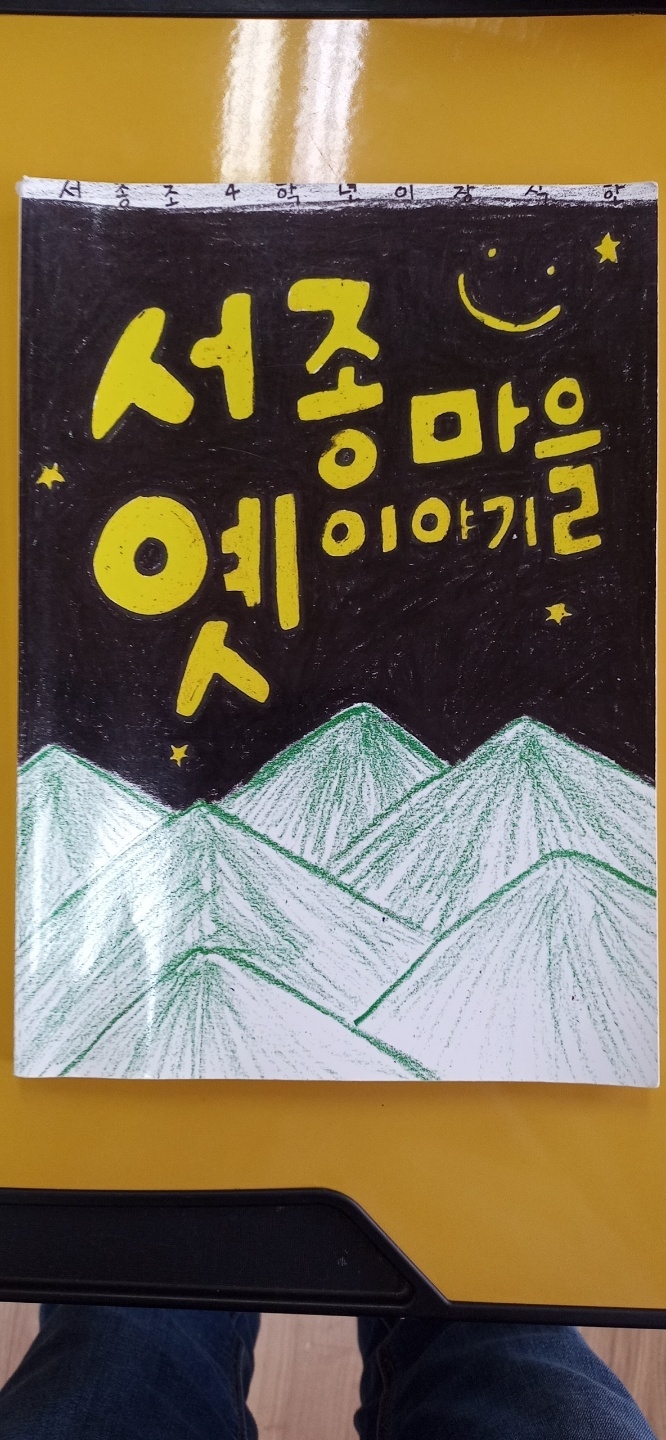 서종초 4학년이 장식한
서종마을
옛이야기